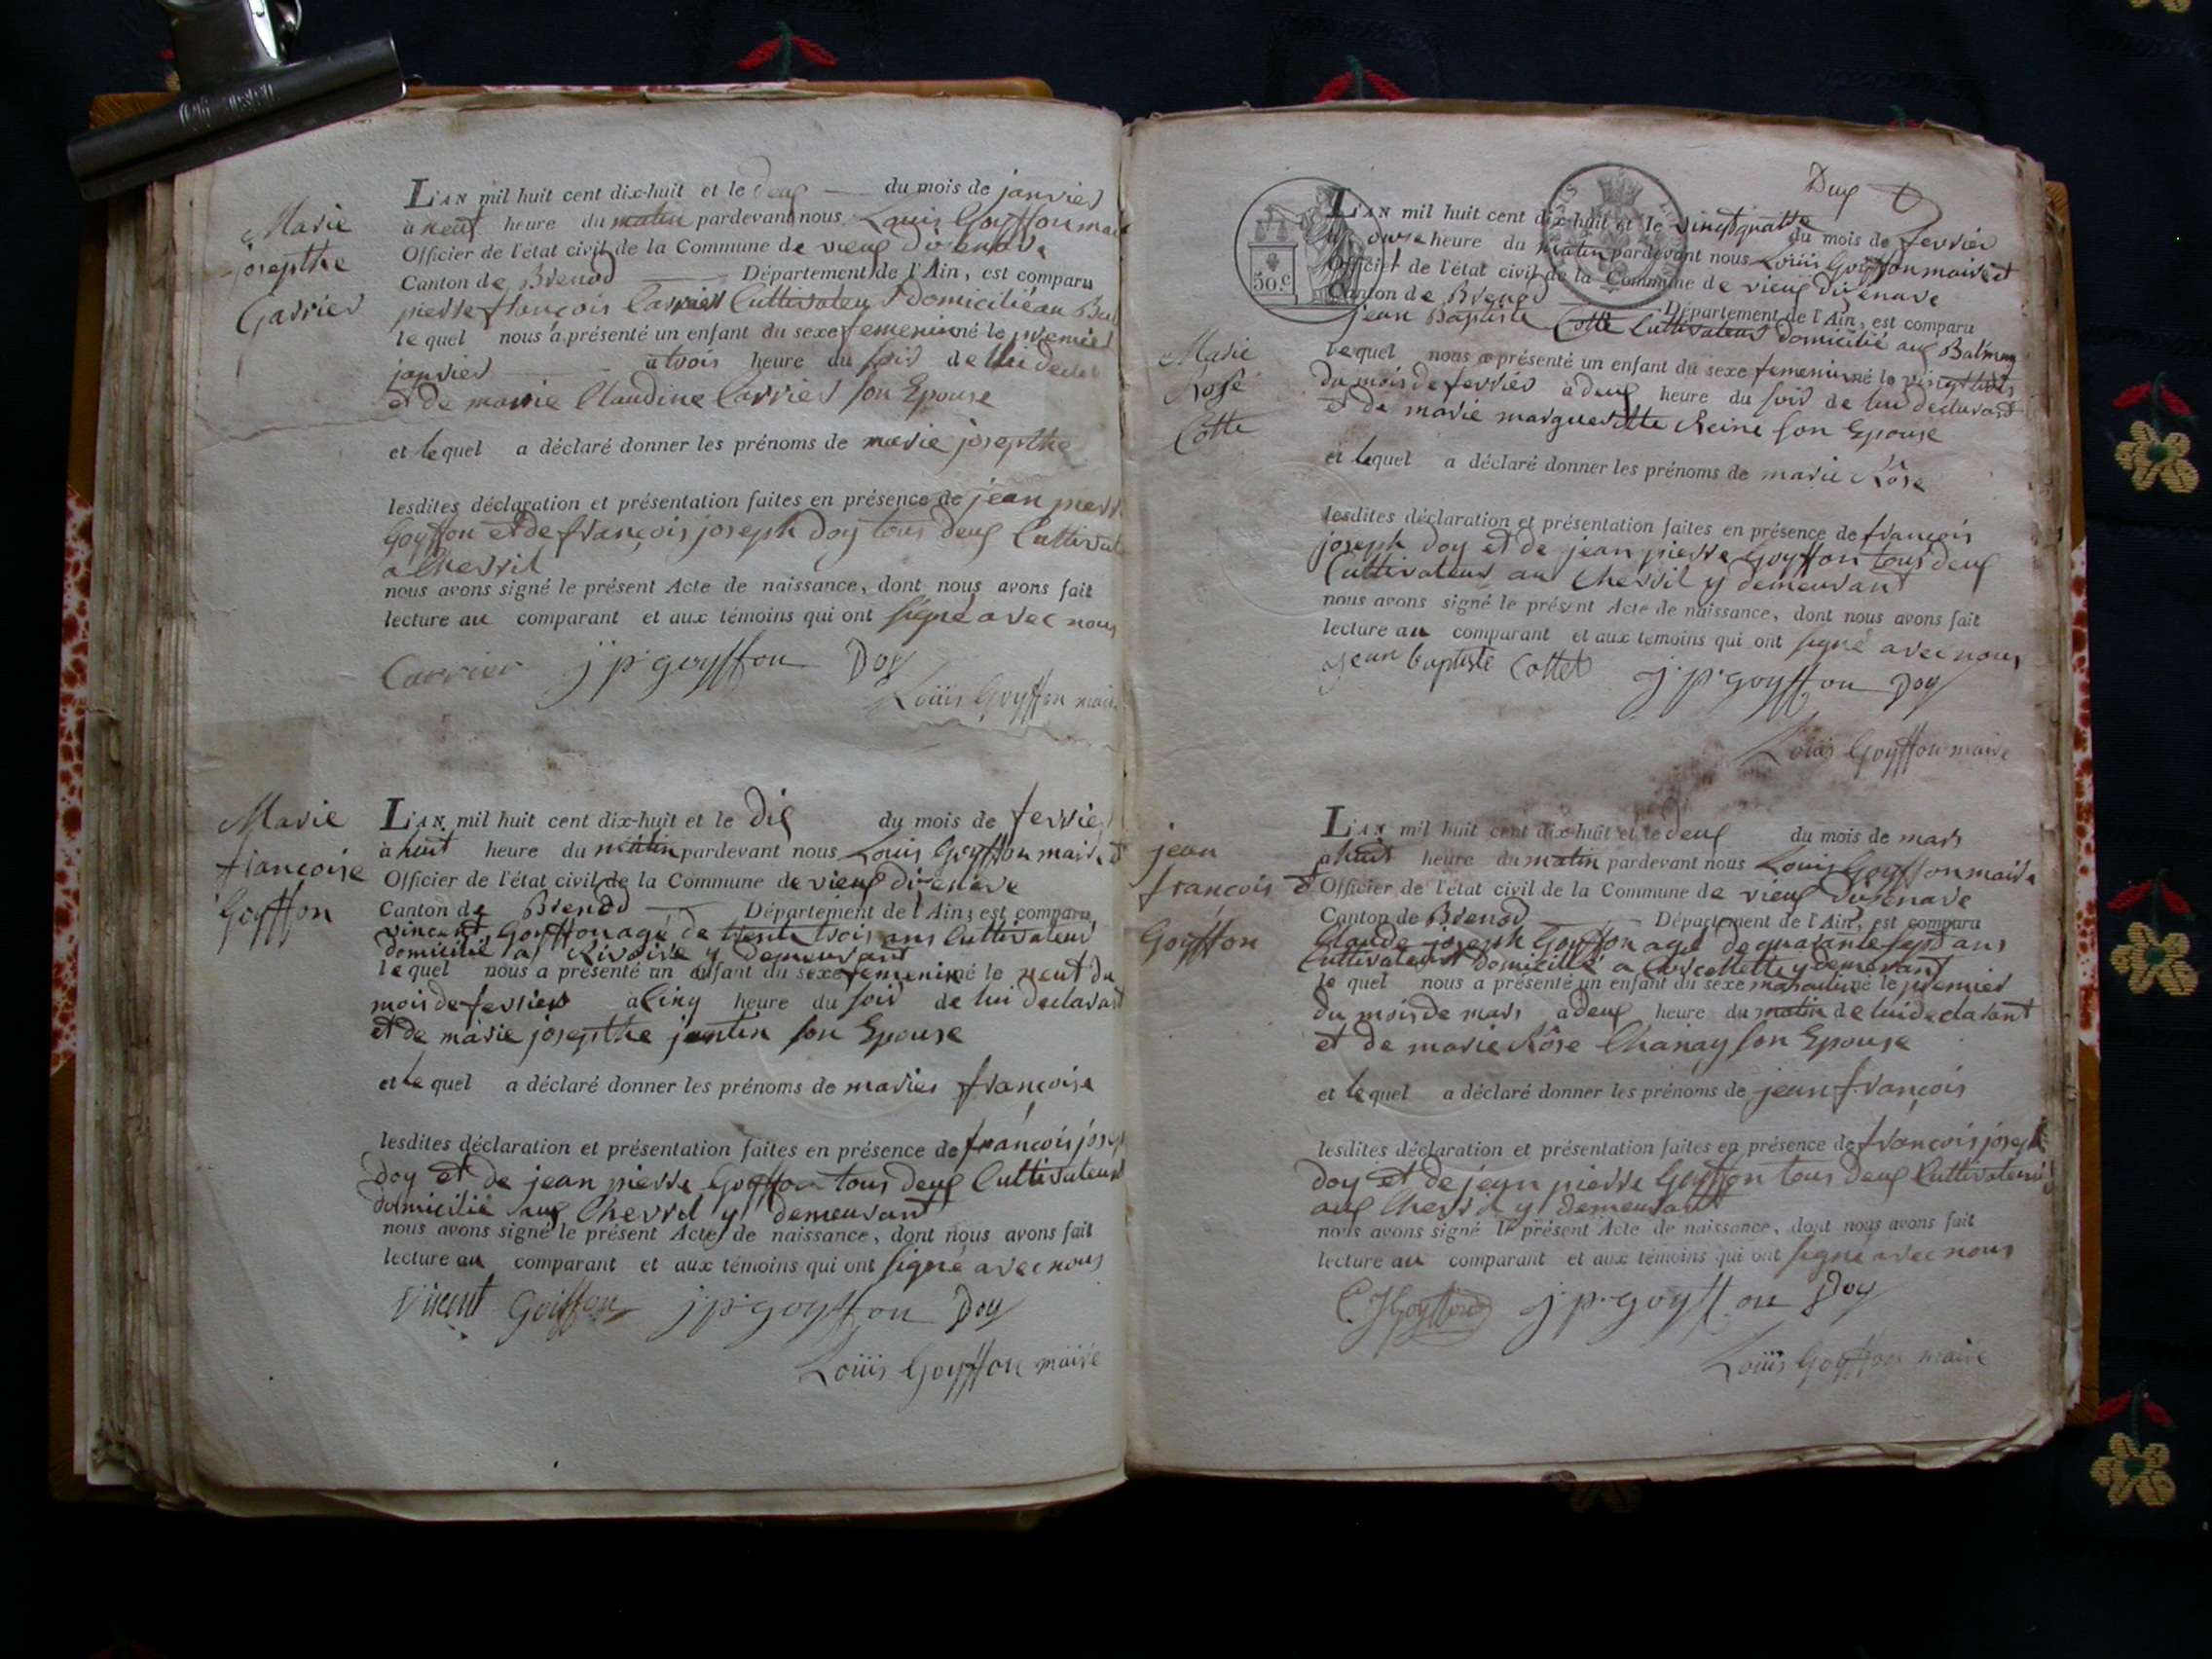 Marie
josepthe
Carrier
L'AN mil huit cent dix-huit et le deux du mois de janvier
à neuf heure du matin pardevant nous Louis Goyffon mai
Officier de l'état civil de la Commune de vieux dizenave
Canton de Brenod Département de l'Ain, est comparu
pierre françois Carrier Cultivateur domicilié au
le quel nous a présenté un enfant du sexe femenin né le premier
janvier a trois heure du soir de lui
et de marie Claudine Carrier son Epouse
et le quel a déclaré donner les prénoms de marie josepthe
lesdites déclaration et présentation faites en présence de jean pierr
Goyffon et de françois joseph doy tous deux Cultivat
a Chevril
nous avons signé le présent Acte de naissance, dont nous avons fait
lecture au comparant et aux témoins qui ont signé avec nous
Carrier j p goyffon Doy
Loüis Goyffon mair
Marie
françoise
Goyffon
L'AN mil huit cent dix-huit et le dix du mois de fevrier
à huit heure du matin pardevant nous Louis Goyffon maire et
Officier de l'état civil de la Commune de vieux dizenave
Canton de Brenod Département de l'Ain, est comparu
vincent Goyffon agé de trente trois ans Cultivateur
domicilié a Rivoire y demeurant
le quel nous a présenté un enfant du sexe femenin né le neuf du
mois de fevrier à Cinq heure du soir de lui declarant
et de marie josepthe jantin son Epouse
et le quel a déclaré donner les prénoms de maries françoise
lesdites déclaration et présentation faites en présence de françois josep
doy et de jean pierre Goyffon tous deux Cultivateur
domicilié aux Chevril y demeurant
nous avons signé le présent Acte de naissance, dont nous avons fait
lecture au comparant et aux témoins qui ont signé avec nous
Vincent Goiffon j p goyffon Doy
Loüis Goyffon maire
Deux
50.c
Marie
Rose
Cotte
L'AN mil huit cent dix-huit et le vingt quattre du mois de fevrier
à onze heure du matin pardevant nous Loüis Goyffon maire et
Officier de l'état civil de la Commune de vieux dizenave
Canton de Brenod Département de l'Ain, est comparu
jean Baptiste Cotte Cultivateur domicilié aux
le quel nous a présenté un enfant du sexe femenin né le vingt trois
du mois de fevrier a deux heure du soir de lui declarant
et de marie margueritte Reine son Epouse
et lequel a déclaré donner les prénoms de marie Rôse
lesdites déclaration et présentation faites en présence de françois
joseph doy et de jean pierre Goyffon tous deux
Cultivateur au Chevril y demeurant
nous avons signé le présent Acte de naissance, dont nous avons fait
lecture au comparant et aux témoins qui ont signé avec nous
jean baptiste Cottet j p goyffon Doy
Loüis Goyffon maire
jean
francois
Goyffon
L'AN mil huit cent dix-huit et le deux du mois de mars
a huit heure du matin pardevant nous Louis Goyffon maire
et Officier de l'état civil de la Commune de vieux dizenave
Canton de Brenod Département de l'Ain, est comparu
Claude joseph Goyffon agé de quarante sept ans
Cultivateur domicillié a y demeurant
le quel nous a présenté un enfant du sexe masculin né le premier
du mois de mars a deux heure du matin de lui declarant
et de marie Rôse Chanay son Epouse
et le quel a déclaré donner les prénoms de jean françois
lesdites déclaration et présentation faites en présence de françois joseph
doy et de jean pierre Goyffon tous deux Cultivateur
aux Chevril y demeurant
nous avons signé le présent Acte de naissance, dont nous avons fait
lecture au comparant et aux témoins qui ont signé avec nous
C J Goyffon j p goyffon Doy
Loüis Goyffon maire